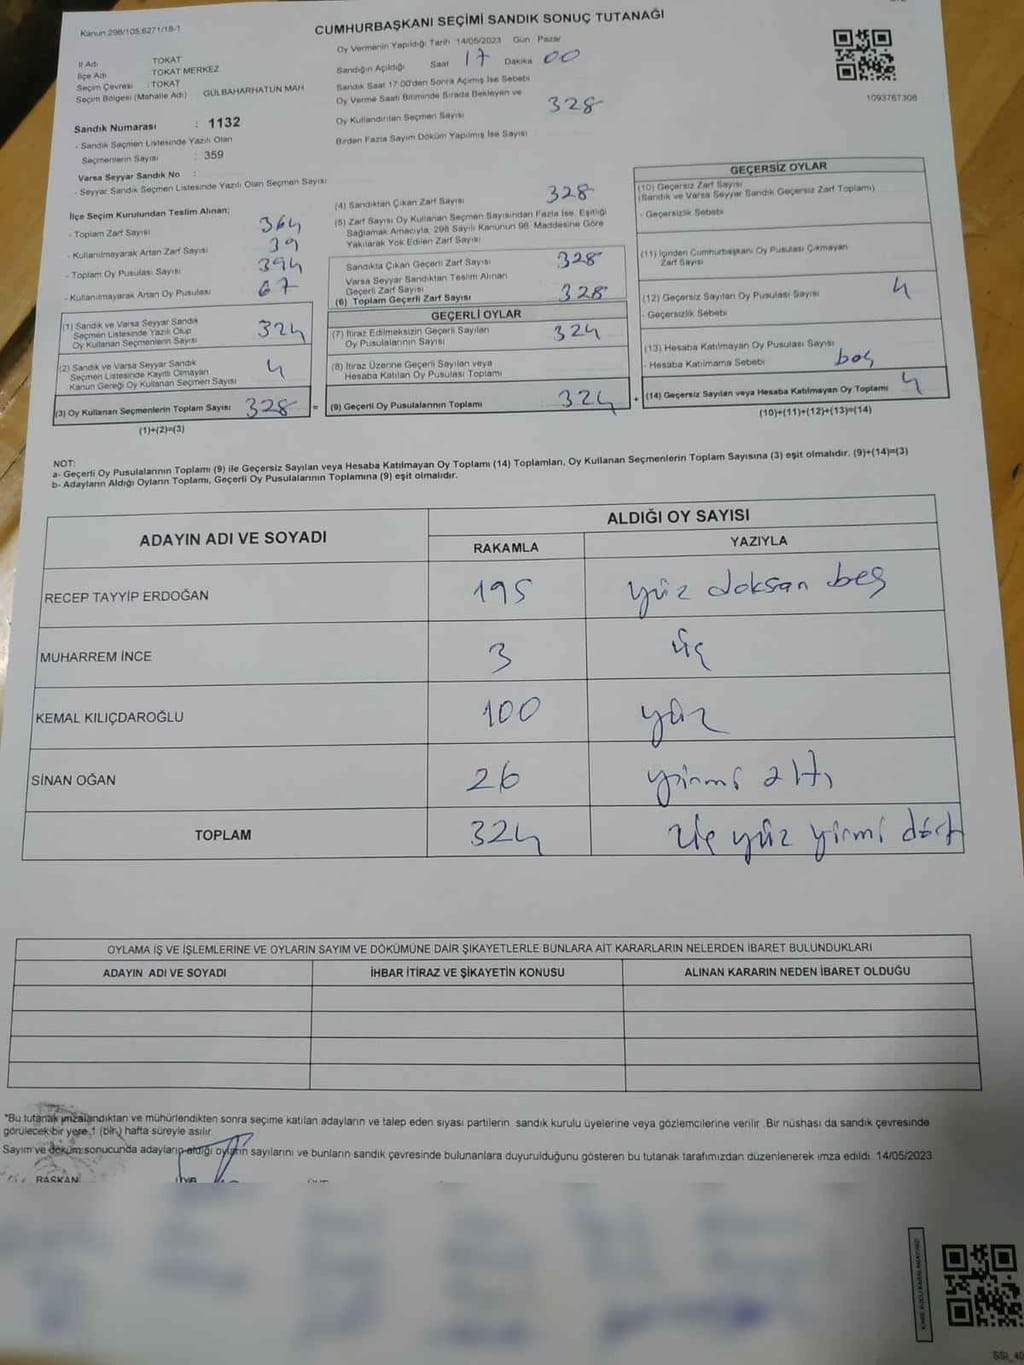 Kanun:298/105;6271/18-1
CUMHURBAŞKANI SEÇİMİ SANDIK SONUÇ TUTANAĞI
Oy Vermenin Yapıldığı Tarih 14/05/2023 Gün Pazar
İl Adı TOKAT
İlçe Adı TOKAT MERKEZ
Seçim Çevresi : TOKAT
Seçim Bölgesi (Mahalle Adı) GÜLBAHARHATUN MAH
Sandığın Açıldığı Saat 17 Dakika 00
Sandık Saat 17:00'den Sonra Açılmış İse Sebebi
Oy Verme Saati Bitiminde Sırada Bekleyen ve
Oy Kullandırılan Seçmen Sayısı 328
Birden Fazla Sayım Döküm Yapılmış İse Sayısı
1093767308
Sandık Numarası : 1132
- Sandık Seçmen Listesinde Yazılı Olan
Seçmenlerin Sayısı : 359
Varsa Seyyar Sandık No :
- Seyyar Sandık Seçmen Listesinde Yazılı Olan Seçmen Sayısı
İlçe Seçim Kurulundan Teslim Alınan;
- Toplam Zarf Sayısı 364
- Kullanılmayarak Artan Zarf Sayısı 39
- Toplam Oy Pusulası Sayısı 394
- Kullanılmayarak Artan Oy Pusulası 67
(1) Sandık ve Varsa Seyyar Sandık
Seçmen Listesinde Yazılı Olup
Oy Kullanan Seçmenlerin Sayısı 324
(2) Sandık ve Varsa Seyyar Sandık
Seçmen Listesinde Kayıtlı Olmayan
Kanun Gereği Oy Kullanan Seçmen Sayısı 4
(3) Oy Kullanan Seçmenlerin Toplam Sayısı 328 =
(1)+(2)=(3)
(4) Sandıktan Çıkan Zarf Sayısı 328
(5) Zarf Sayısı Oy Kullanan Seçmen Sayısından Fazla İse, Eşitliği
Sağlamak Amacıyla, 298 Sayılı Kanunun 98. Maddesine Göre
Yakılarak Yok Edilen Zarf Sayısı
Sandıkta Çıkan Geçerli Zarf Sayısı 328
Varsa Seyyar Sandıktan Teslim Alınan
Geçerli Zarf Sayısı
(6) Toplam Geçerli Zarf Sayısı 328
GEÇERLİ OYLAR
(7) İtiraz Edilmeksizin Geçerli Sayılan
Oy Pusulalarının Sayısı 324
(8) İtiraz Üzerine Geçerli Sayılan veya
Hesaba Katılan Oy Pusulası Toplamı
(9) Geçerli Oy Pusulalarının Toplamı 324 +
GEÇERSİZ OYLAR
(10) Geçersiz Zarf Sayısı
(Sandık ve Varsa Seyyar Sandık Geçersiz Zarf Toplamı)
- Geçersizlik Sebebi
(11) İçinden Cumhurbaşkanı Oy Pusulası Çıkmayan
Zarf Sayısı
(12) Geçersiz Sayılan Oy Pusulası Sayısı 4
- Geçersizlik Sebebi
(13) Hesaba Katılmayan Oy Pusulası Sayısı
- Hesaba Katılmama Sebebi boş
(14) Geçersiz Sayılan veya Hesaba Katılmayan Oy Toplamı 4
(10)+(11)+(12)+(13)=(14)
NOT:
a- Geçerli Oy Pusulalarının Toplamı (9) ile Geçersiz Sayılan veya Hesaba Katılmayan Oy Toplamı (14) Toplamları, Oy Kullanan Seçmenlerin Toplam Sayısına (3) eşit olmalıdır. (9)+(14)=(3)
b- Adayların Aldığı Oyların Toplamı, Geçerli Oy Pusulalarının Toplamına (9) eşit olmalıdır.
ADAYIN ADI VE SOYADI ALDIĞI OY SAYISI
RAKAMLA YAZIYLA
RECEP TAYYİP ERDOĞAN 195 yüz doksan beş
MUHARREM İNCE 3 üç
KEMAL KILIÇDAROĞLU 100 yüz
SİNAN OĞAN 26 yirmi altı
TOPLAM 324 üç yüz yirmi dört
OYLAMA İŞ VE İŞLEMLERİNE VE OYLARIN SAYIM VE DÖKÜMÜNE DAİR ŞİKAYETLERLE BUNLARA AİT KARARLARIN NELERDEN İBARET BULUNDUKLARI
ADAYIN ADI VE SOYADI İHBAR İTİRAZ VE ŞİKAYETİN KONUSU ALINAN KARARIN NEDEN İBARET OLDUĞU
*Bu tutanak imzalandıktan ve mühürlendikten sonra seçime katılan adayların ve talep eden siyasi partilerin sandık kurulu üyelerine veya gözlemcilerine verilir. Bir nüshası da sandık çevresinde
görülecek bir yere 1 (bir) hafta süreyle asılır.
Sayım ve döküm sonucunda adayların aldığı oyların sayılarını ve bunların sandık çevresinde bulunanlara duyurulduğunu gösteren bu tutanak tarafımızdan düzenlenerek imza edildi. 14/05/2023
BAŞKAN